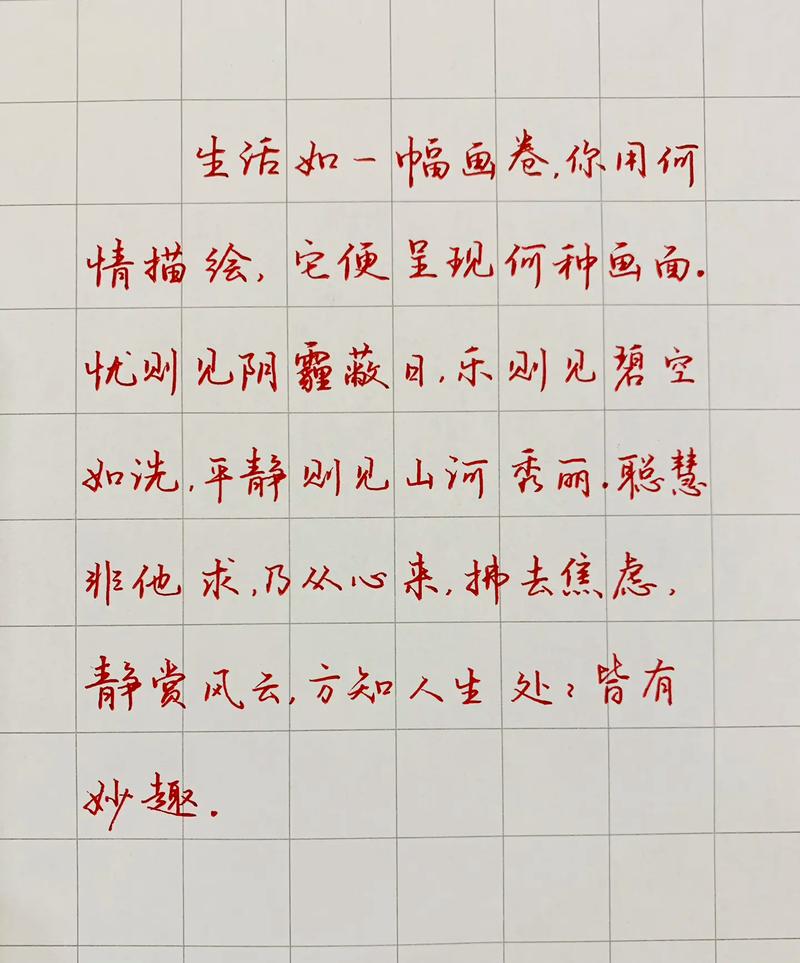 生活如一幅画卷,你用何
情描绘,它便呈现何种画面.
忧则见阴霾蔽日,乐则见碧空
如洗,平静则见山河秀丽.聪慧
非他求,乃从心来,拂去焦虑,
静赏风云,方知人生处々皆有
妙趣.